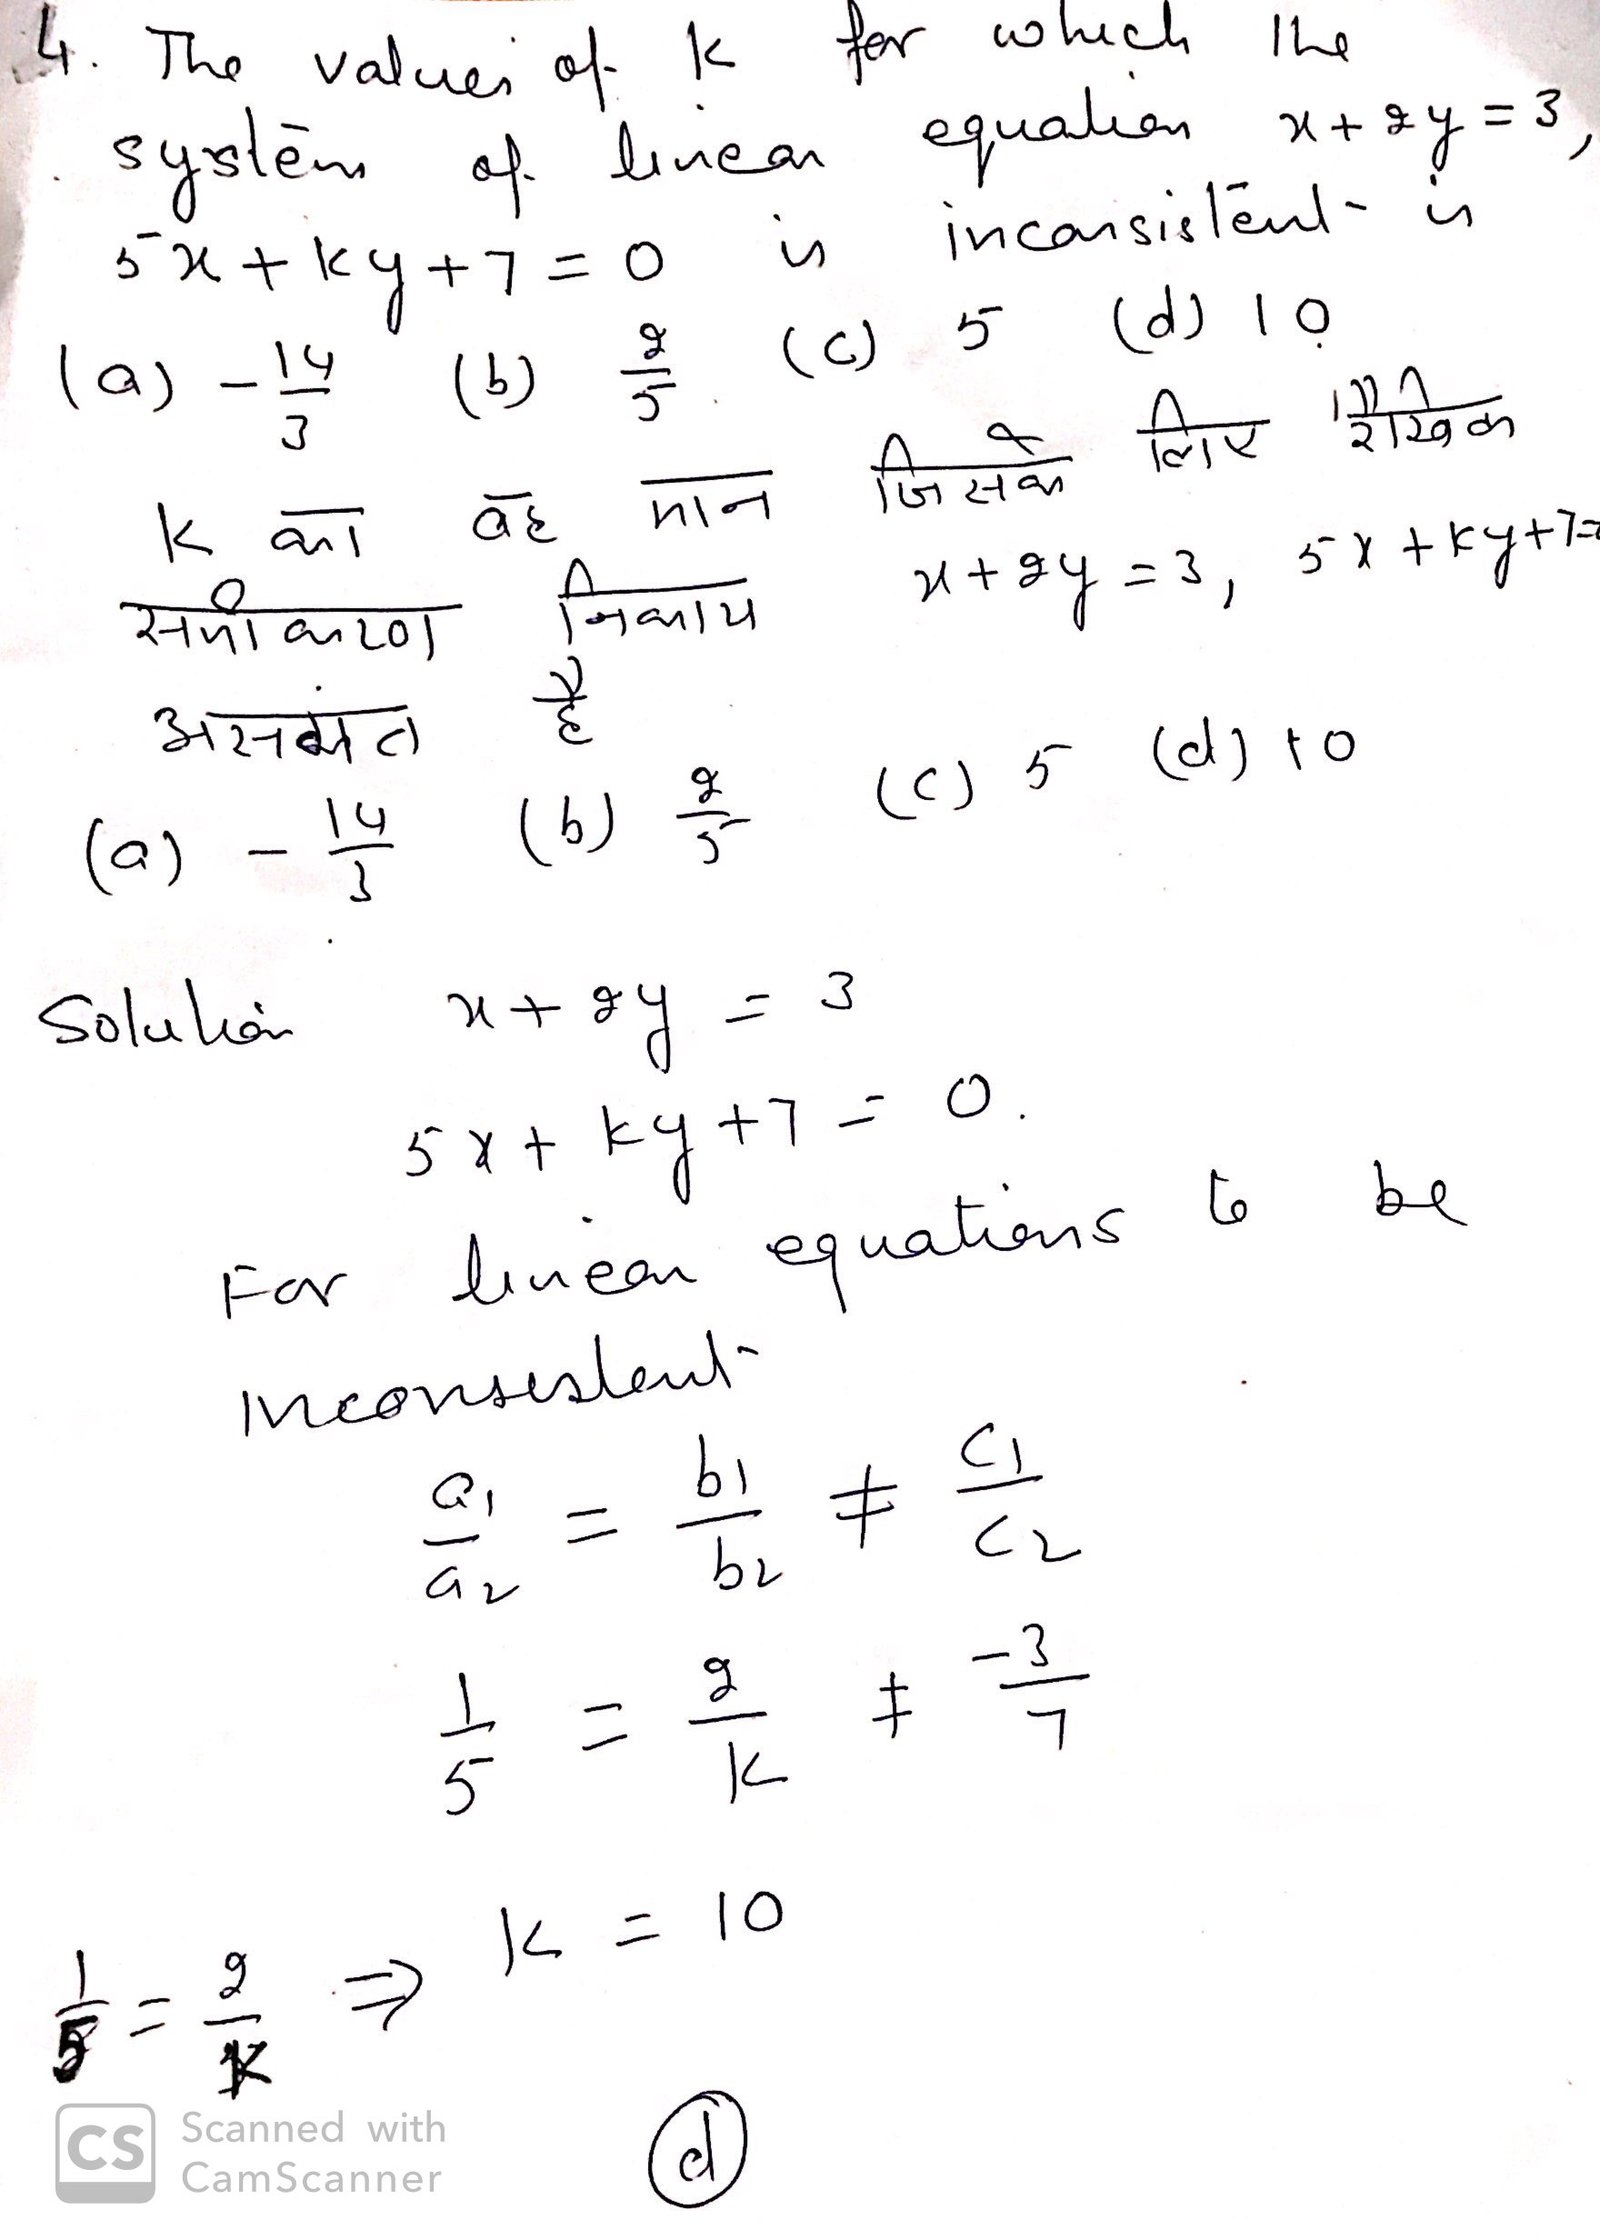 4. The values of k for which the
system of linear equation x + 2y = 3,
5x + ky + 7 = 0 is inconsistent is
(a) -14/3 (b) 2/5 (c) 5 (d) 10
k का वह मान जिसके लिए रैखिक
समीकरण निकाय x + 2y = 3, 5x + ky + 7 =
असंगत है
(a) -14/3 (b) 2/5 (c) 5 (d) 10
Solution x + 2y = 3
5x + ky + 7 = 0.
For linear equations to be
inconsistent
a1/a2 = b1/b2 ≠ c1/c2
1/5 = 2/k ≠ -3/7
1/5 = 2/k ⇒ k = 10
(d)
CS Scanned with
CamScanner